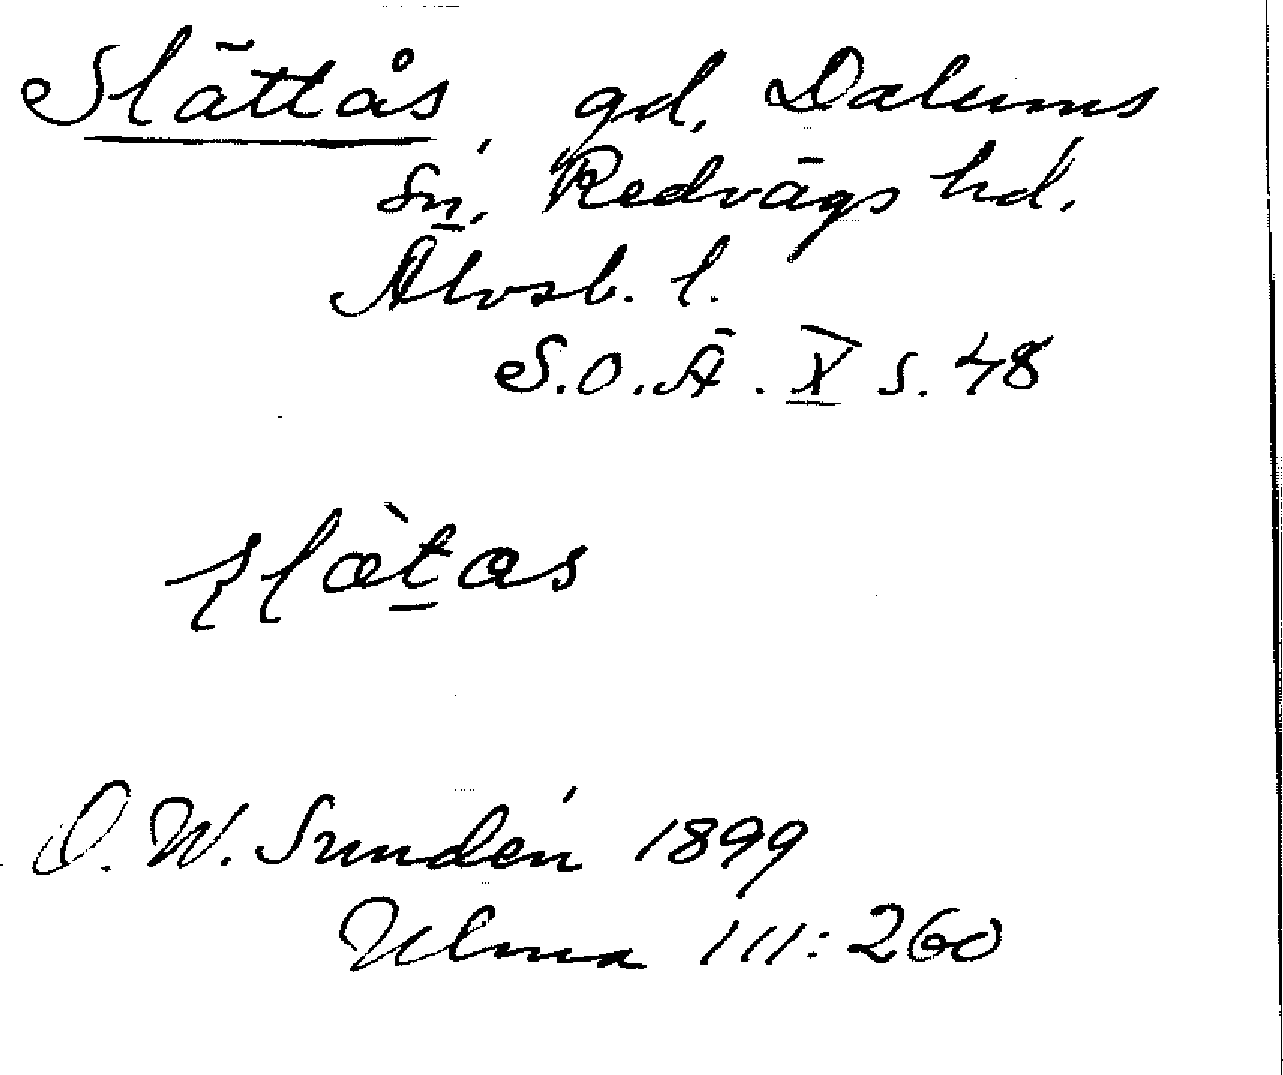 Slättås, gd, Dalums
sn, Redvägs hd.
Älvsb. l.
S.O.Ä. X s. 48
slætas
D. W. Sundén 1899
Ulma 111:260